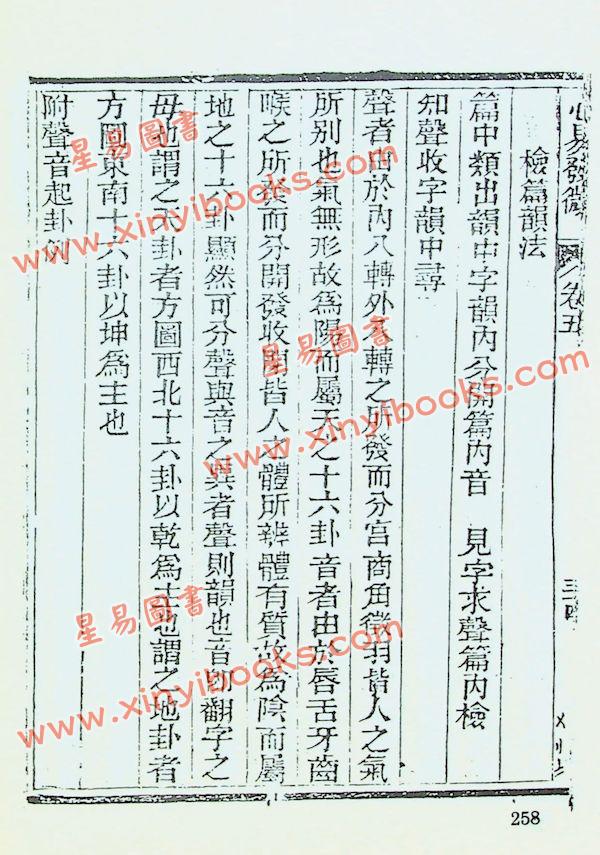 心易發微 卷五 三
檢篇韻法
篇中類出韻中字韻內分開篇內音 見字求聲篇內檢
知聲收字韻中尋
聲者由於內八轉外八轉之所發而分宮商角徵羽皆人之氣
所別也氣無形故為陽而屬天之十六卦音者由於唇舌牙齒
喉之所發而分開發收閉皆人之體所辨體有質故為陰而屬
地之十六卦顯然可分聲與音之異者聲則韻也音即翻字之
母也謂之天卦者方圖西北十六卦以乾為主也謂之地卦者
方圖東南十六卦以坤為主也
附聲音起卦例
258
星易圖書
www.xinyibooks.com
星易圖書
www.xinyibooks.com
星易圖書
www.xinyibooks.com